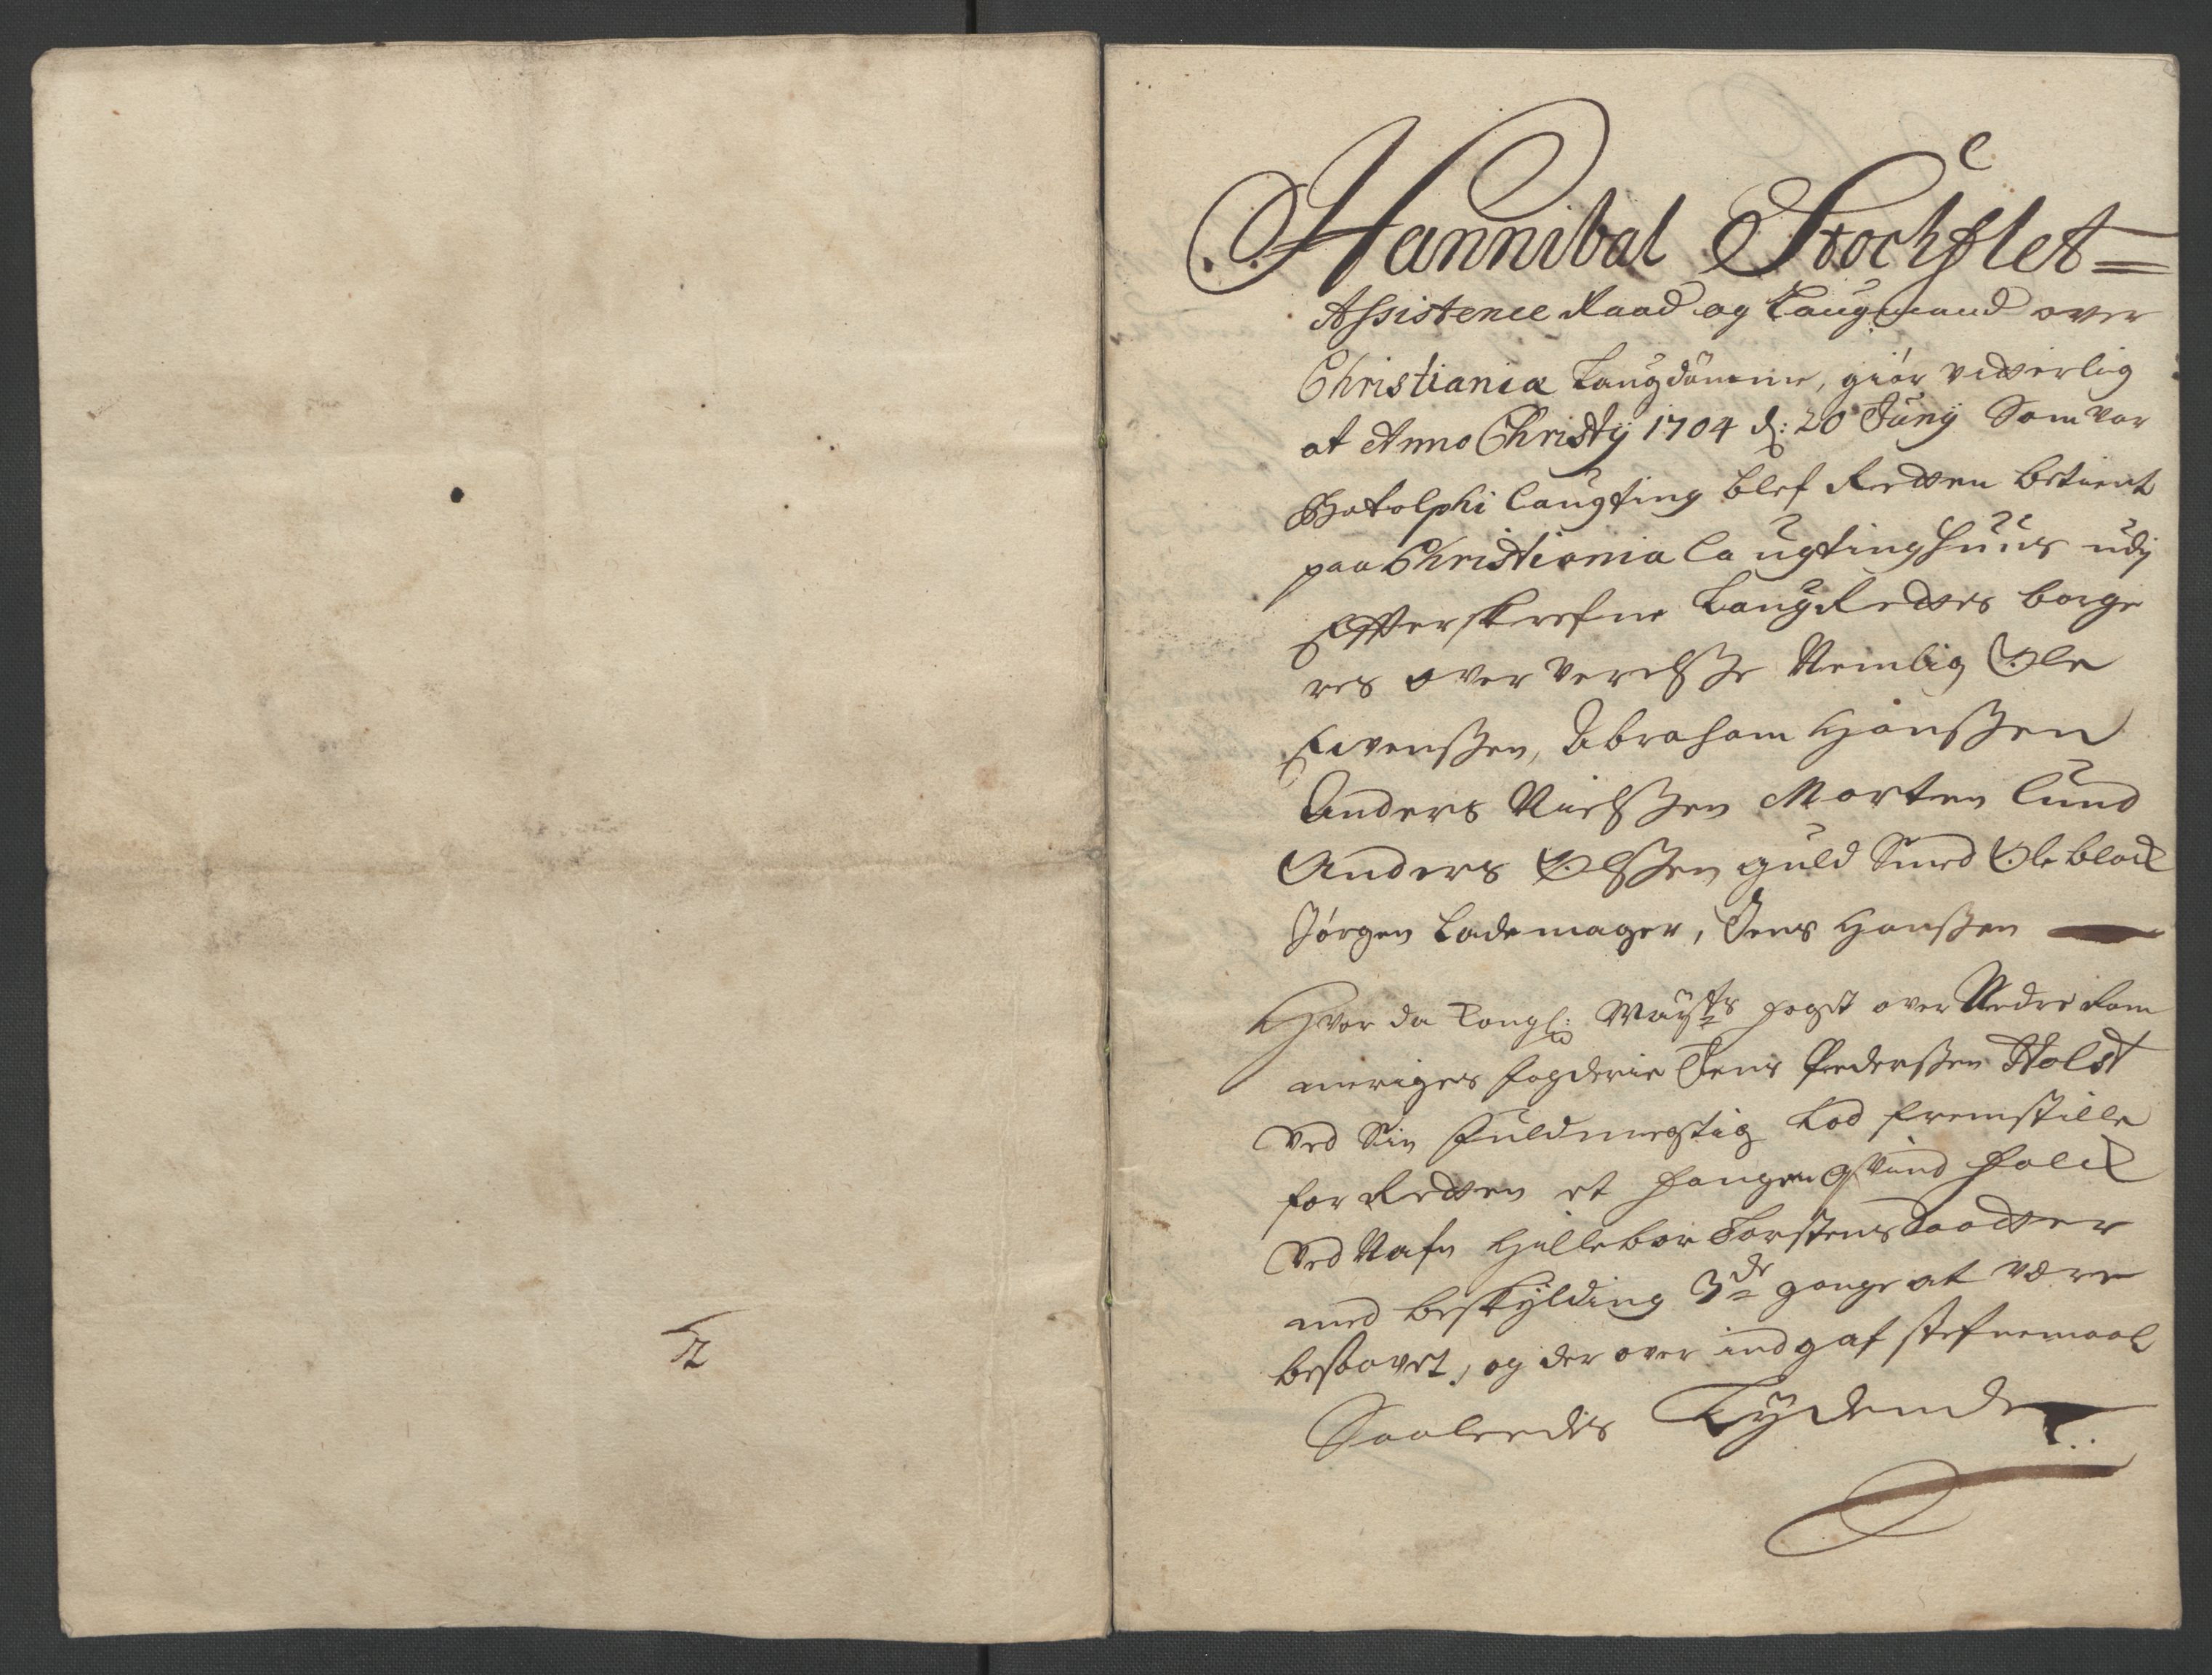 Hannibal Stochflet=
Assistence Raad og Laugmand over
Christiania Laugdømme, giør vitterlig
at Anno Christÿ 1704 d: 20 Junÿ Som var
Botolphi Laugting blef Retten betient
paa Christiania Laugtinghuus udj
Effterskrefne LaugRettes borge
res oververelsse Nemlig Ole
Evenssen, Abraham Hanssen
Anders Nielssen Morten Lund
Anders Olssen guld Smed Ole blach
Jørgen Lademager, Jens Hanssen
Hvor da Kongl: Maÿts fogit over Nedre Rom
meriges fogderie Jens Pederssen Holst
Ved Sin Fuldmegtig Lod fremstille
for Retten et fangen qvind folch
Ved Nafn Hellebor Torstensdaatter
med beskÿlding 3de gange at være
besaavet, og der over indgaf stefnemaal
Saaleedis Lÿdende
12